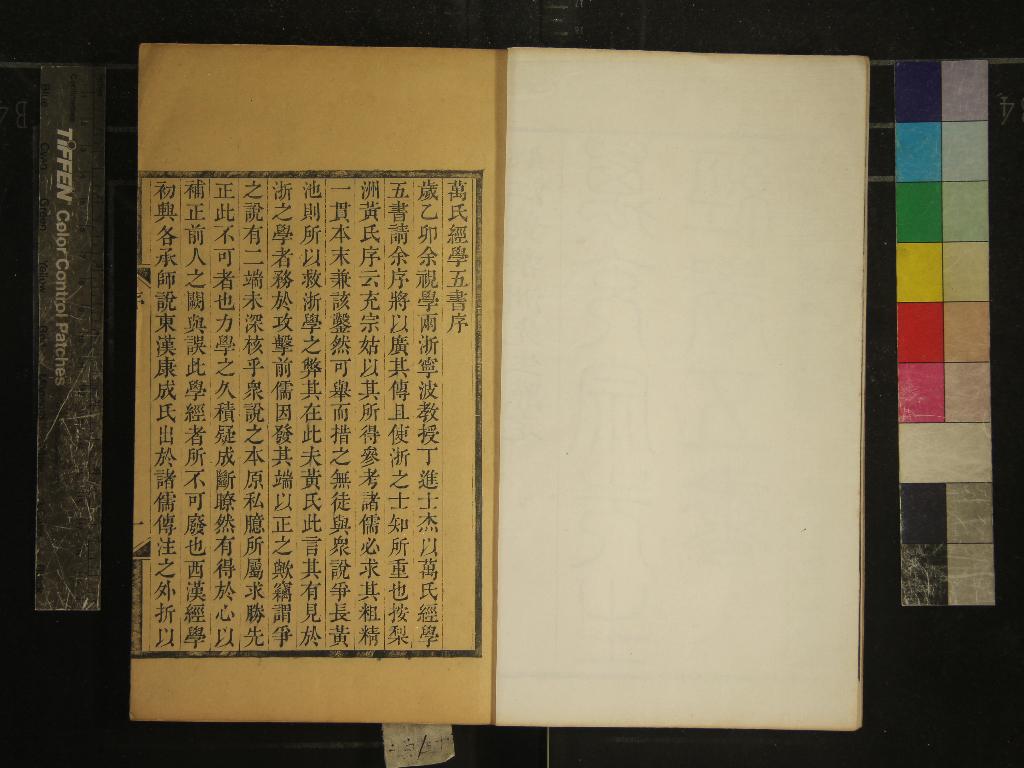 萬氏經學五書序
歲乙卯余視學兩浙寧波教授丁進士杰以萬氏經學
五書請余序將以廣其傳且使浙之士知所重也按梨
洲黃氏序云充宗姑以其所得參考諸儒必求其粗精
一貫本末兼該鑿然可舉而措之無徒與衆說爭長黃
池則所以救浙學之弊其在此夫黃氏此言其有見於
浙之學者務於攻擊前儒因發其端以正之歟竊謂爭
之說有二端未深核乎衆說之本原私臆所屬求勝先
正此不可者也力學之久積疑成斷瞭然有得於心以
補正前人之闕與誤此學經者所不可廢也西漢經學
初興各承師說東漢康成氏出於諸儒傳注之外折以
序
一
TIFFEN Color Control Patches
Centimetres
Blue
Cyan
Green
Yellow
Red
B4